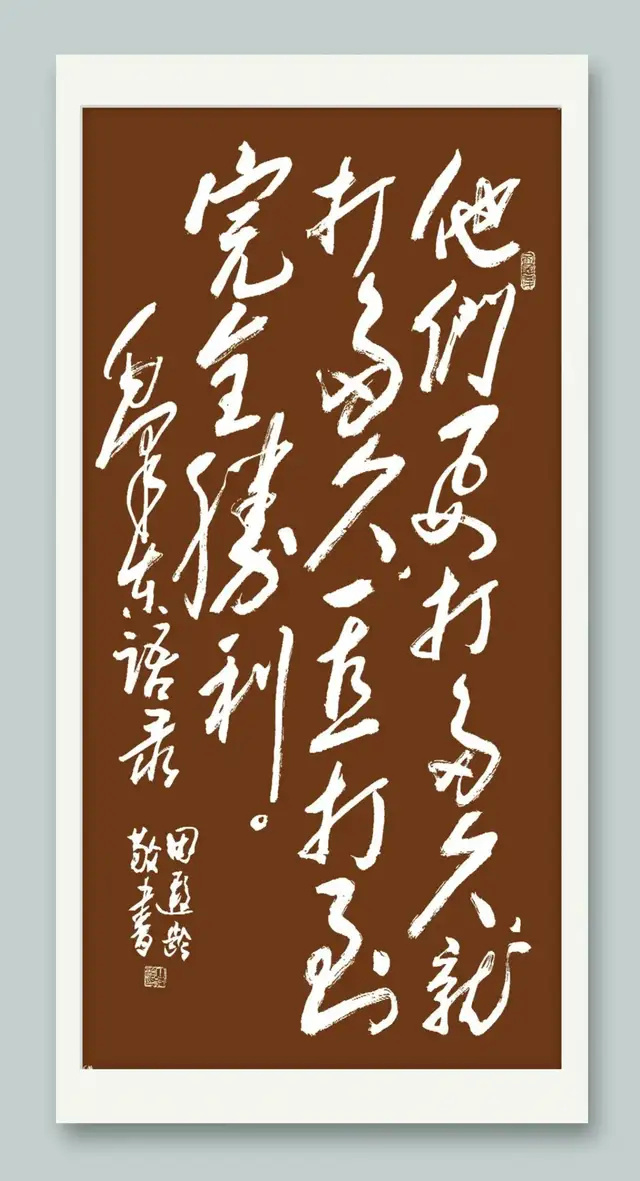 他們要打多久就
打多久，一直打到
完全勝利。
毛泽东语录
田遐龄
敬書